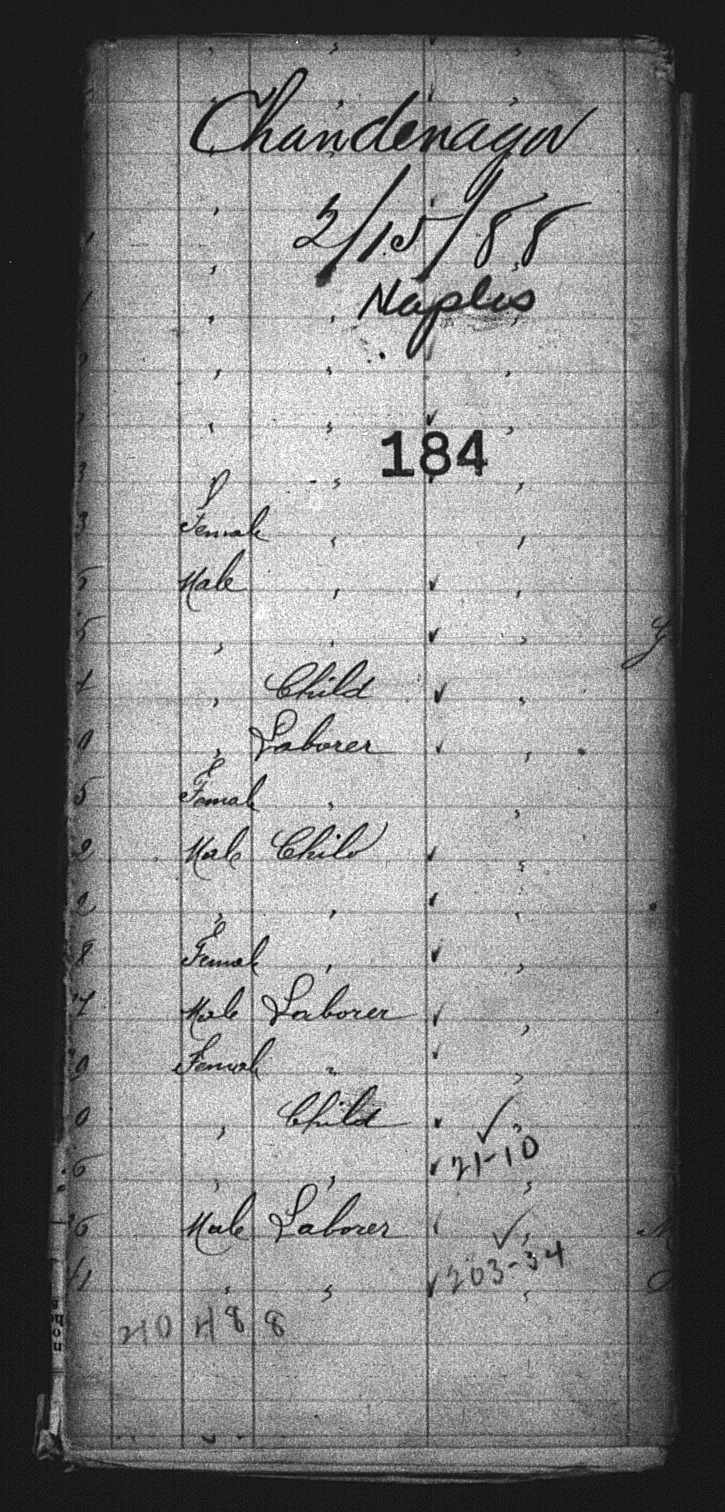 Chandenagor
2/15/88
Naples
184
3 Female
5 Male
5 "
" Child
" Laborer
5 Female "
2 Male Child
2 " "
8 Female "
7 Male Laborer
Female "
0 " Child
6 " " 21-10
6 Male Laborer
" " 203-34
20 488